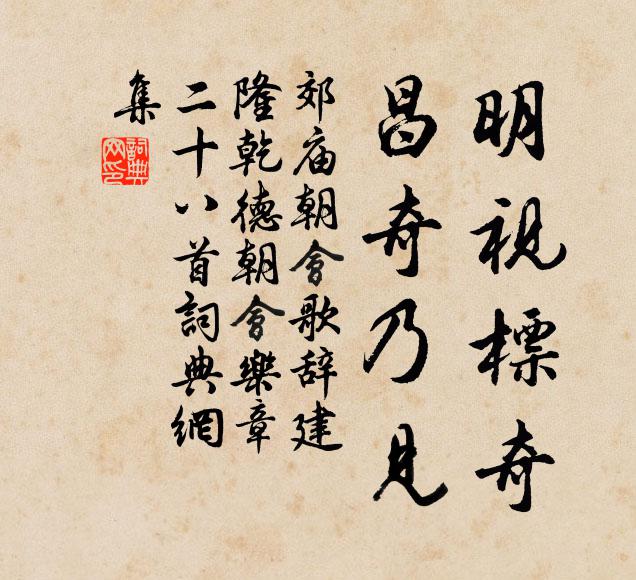 明視標奇
昌奇乃見
郊庙朝會歌辞建
隆乾德朝會樂章
二十八首詞典網
集
詞典
网印